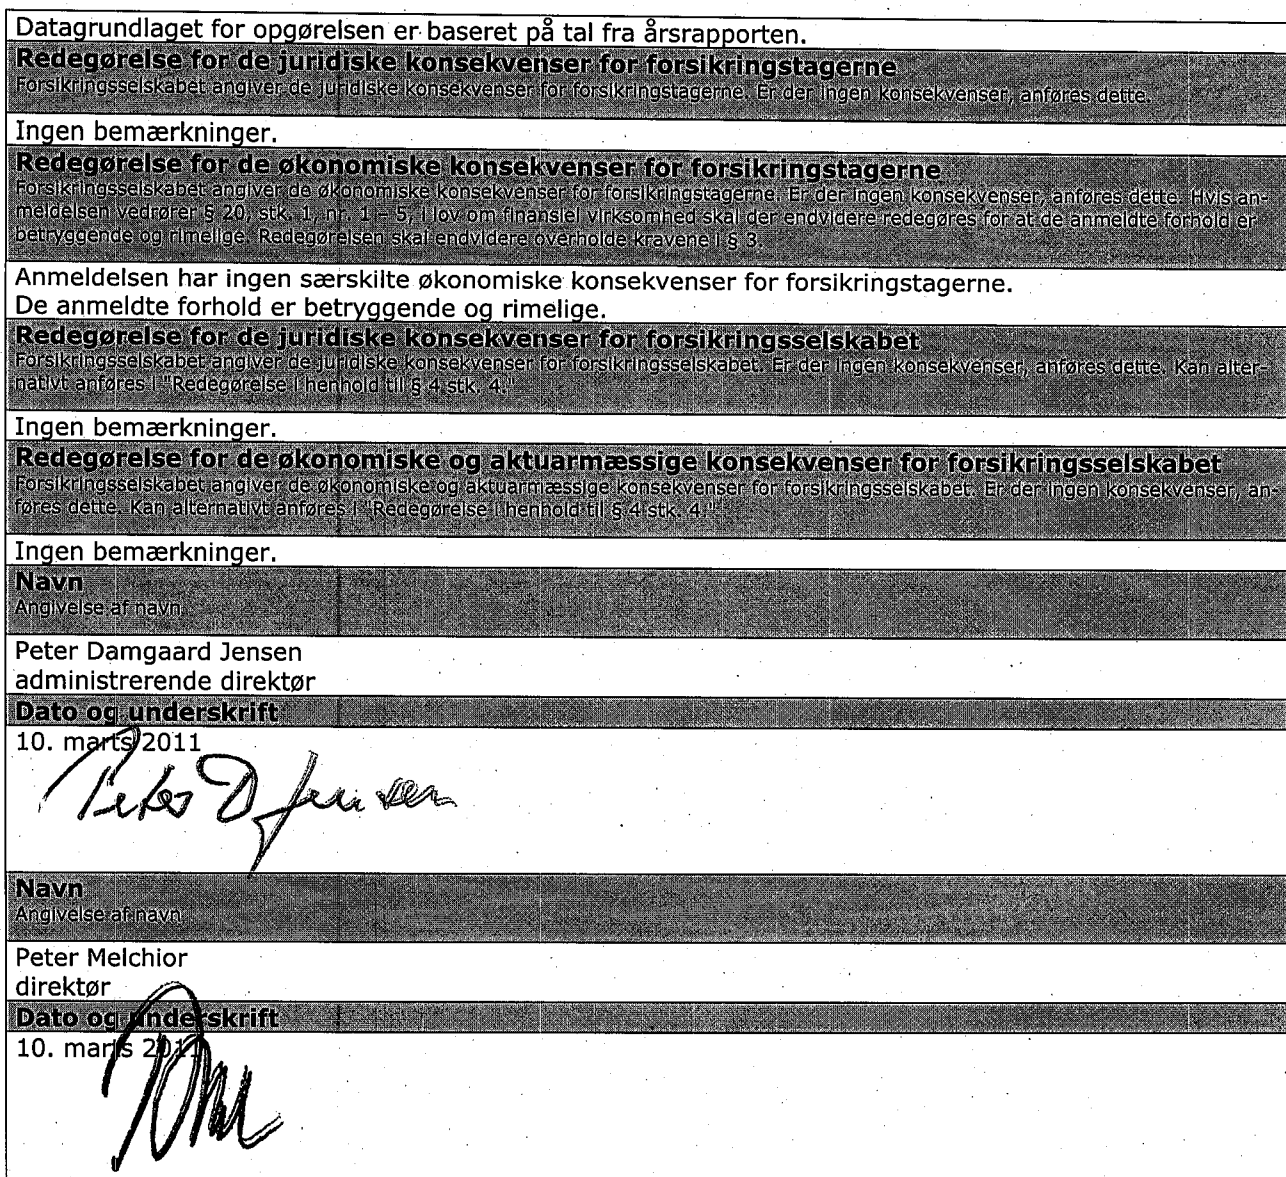 Datagrundlaget for opgørelsen er baseret på tal fra årsrapporten.
Redegørelse for de juridiske konsekvenser for forsikringstagerne
Forsikringsselskabet angiver de juridiske konsekvenser for forsikringstagerne. Er der ingen konsekvenser, anføres dette.
Ingen bemærkninger.
Redegørelse for de økonomiske konsekvenser for forsikringstagerne
Forsikringsselskabet angiver de økonomiske konsekvenser for forsikringstagerne. Er der ingen konsekvenser, anføres dette. Hvis an-
meldelsen vedrører § 20, stk. 1, nr. 1 – 5, i lov om finansiel virksomhed skal der endvidere redegøres for at de anmeldte forhold er
betryggende og rimelige. Redegørelsen skal endvidere overholde kravene i § 3.
Anmeldelsen har ingen særskilte økonomiske konsekvenser for forsikringstagerne.
De anmeldte forhold er betryggende og rimelige.
Redegørelse for de juridiske konsekvenser for forsikringsselskabet
Forsikringsselskabet angiver de juridiske konsekvenser for forsikringsselskabet. Er der ingen konsekvenser, anføres dette. Kan alter-
nativt anføres i "Redegørelse i henhold til § 4 stk. 4."
Ingen bemærkninger.
Redegørelse for de økonomiske og aktuarmæssige konsekvenser for forsikringsselskabet
Forsikringsselskabet angiver de økonomiske og aktuarmæssige konsekvenser for forsikringsselskabet. Er der ingen konsekvenser, an-
føres dette. Kan alternativt anføres i "Redegørelse i henhold til § 4 stk. 4."
Ingen bemærkninger.
Navn
Angivelse af navn
Peter Damgaard Jensen
administrerende direktør
Dato og underskrift
10. marts 2011
Peter D Jensen
Navn
Angivelse af navn
Peter Melchior
direktør
Dato og underskrift
10. marts 2011